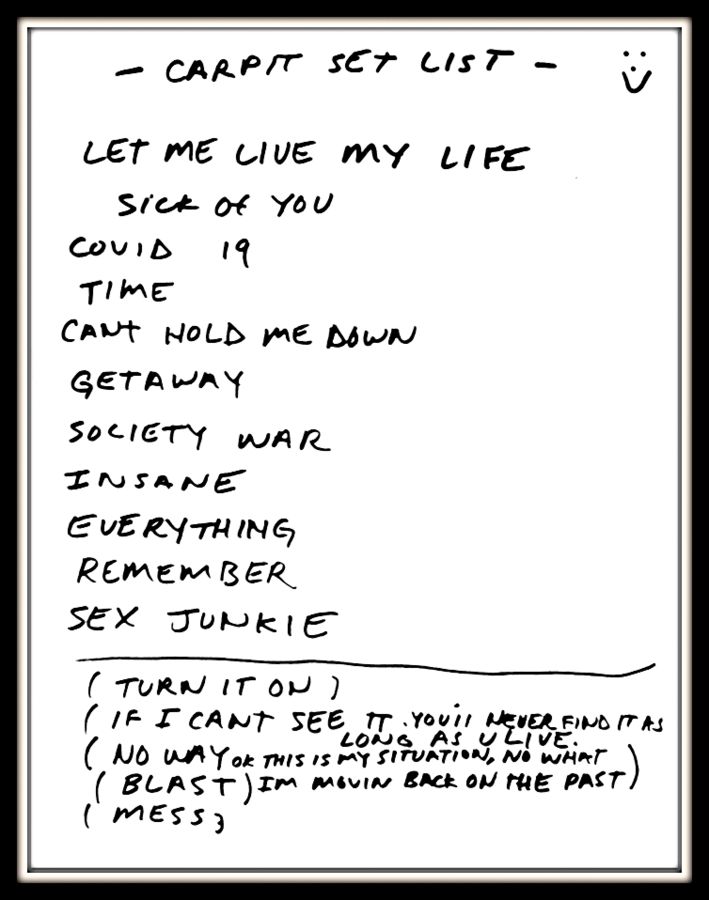 - CARPIT SET LIST -
LET ME LIVE MY LIFE
SICK OF YOU
COVID 19
TIME
CANT HOLD ME DOWN
GETAWAY
SOCIETY WAR
INSANE
EVERYTHING
REMEMBER
SEX JUNKIE
( TURN IT ON )
( IF I CANT SEE IT . YOU'll NEVER FIND IT AS
LONG AS U LIVE.
( NO WAY OK THIS IS MY SITUATION, NO WHAT )
( BLAST ) IM MOVIN BACK ON THE PAST )
( MESS }